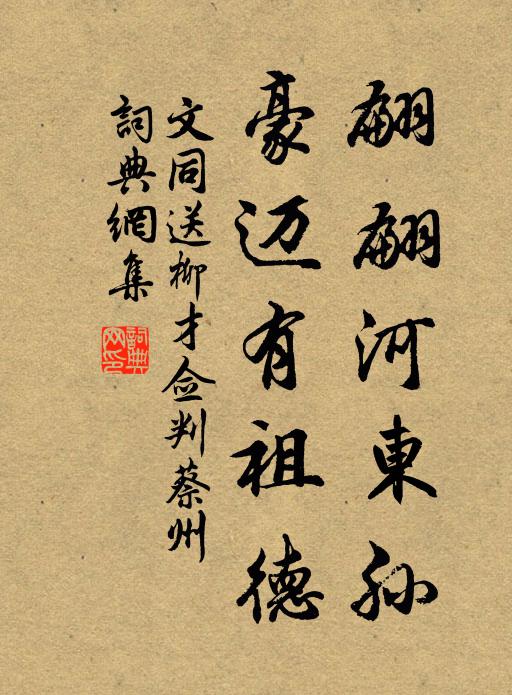 翩翩河東孙
豪迈有祖德
文同送柳才佥判蔡州
詞典網集
詞典网印